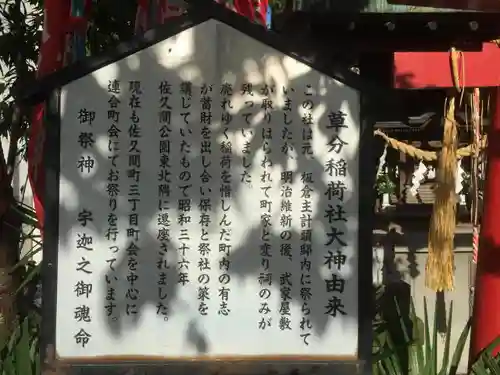 草分稲荷社大神由来
この社は元、板倉主計頭邸内に祭られて
いましたが、明治維新の後、武家屋敷
が取りはらわれて町家と変り、祠のみが
残っていました
廃れゆく稲荷を惜しんだ町内の有志
が蓄財を出し合い保存と祭祀の策を
講じていたもので昭和三十六年
佐久間公園東北隅に遷座されました。
現在も佐久間町三丁目町会を中心に
連合町会にてお祭りを行っています。
御祭神 宇迦之御魂命